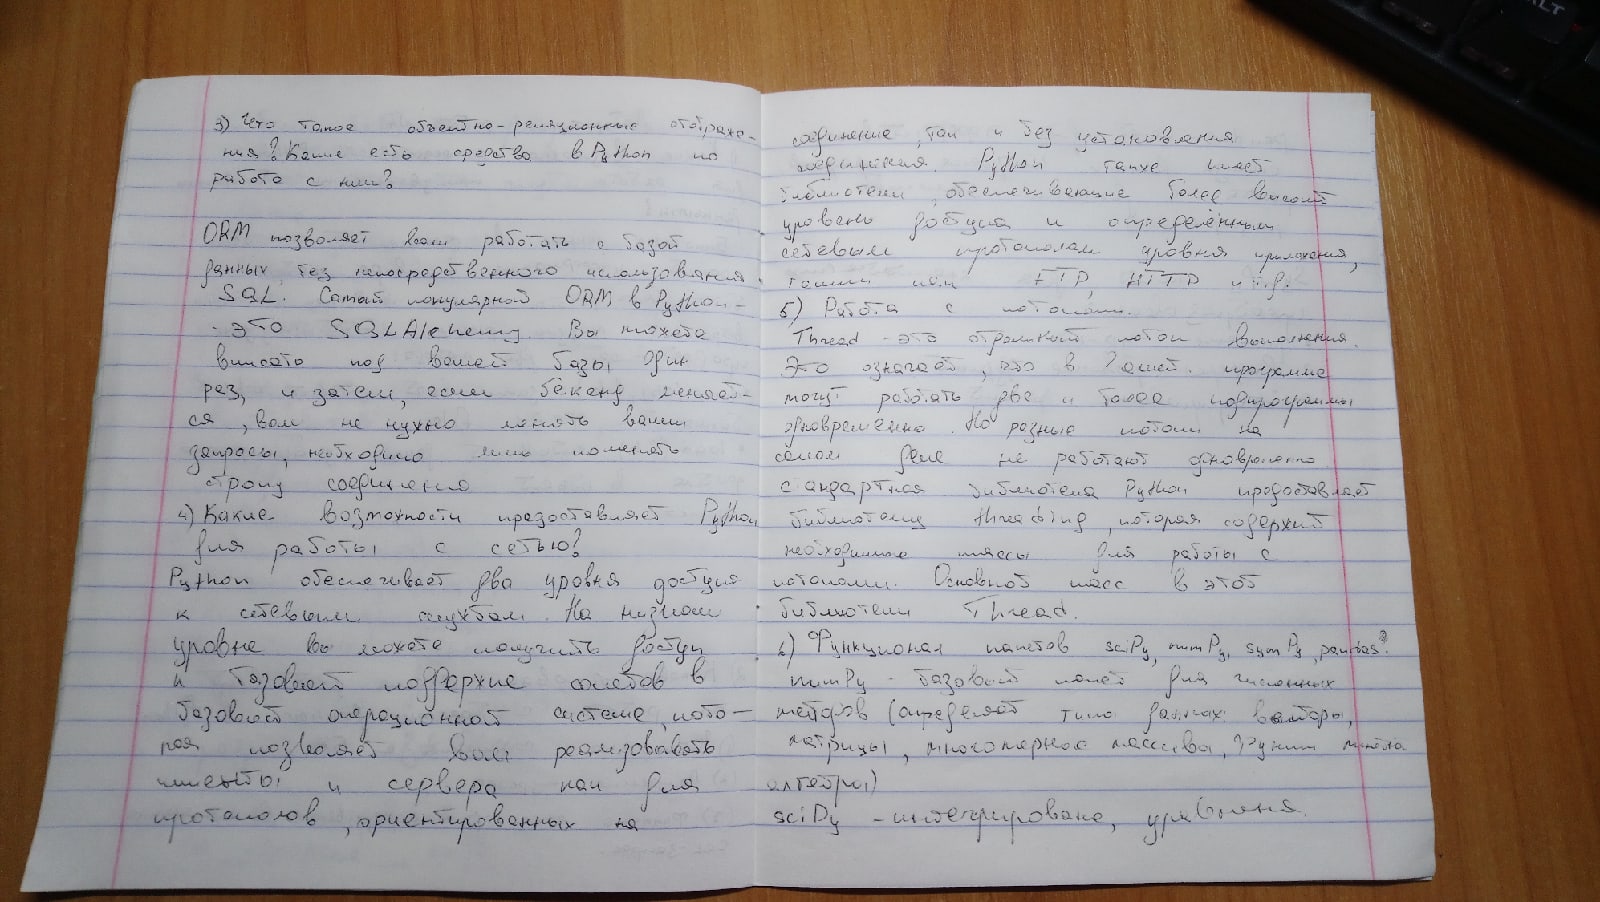 3) Что такое объектно-реляционные отображе-
ния? Какие есть средства в Python по
работе с ними?
ORM позволяет вам работать с базой
данных без непосредственного использования
SQL. Самой популярной ORM в Python -
- это SQLAlchemy. Вы можете
писать под вашей базы один
раз, и затем, если бекенд меняет-
ся, вам не нужно менять ваши
запросы, необходимо лишь поменять
строку соединения
4) Какие возможности предоставляет Python
для работы с сетью?
Python обеспечивает два уровня доступа
к сетевым службам. На низком
уровне вы можете получить доступ
к базовой поддержке сокетов в
базовой операционной системе, кото-
рая позволяет вам реализовывать
клиенты и сервера как для
протоколов, ориентированных на
соединение, так и без установления
соединения. Python также имеет
библиотеки, обеспечивающие более высокий
уровень доступа к определённым
сетевым протоколам уровня приложения,
такими как FTP, HTTP и т.д.
5) Работа с потоками.
Thread - это отдельный поток выполнения.
Это означает, что в вашей программе
могут работать две и более подпрограммы
одновременно. Но разные потоки на
самом деле не работают одновременно.
Стандартная библиотека Python предоставляет
библиотеку threading, которая содержит
необходимые классы для работы с
потоками. Основной класс в этой
библиотеки Thread.
6) Функционал пакетов sciPy, numPy, symPy, pandas?
numPy - базовый пакет для численных
методов (определяет типы данных: векторы,
матрицы, многомерные массивы, функции
алгебры)
sciPy - интегрирование, уравнения.